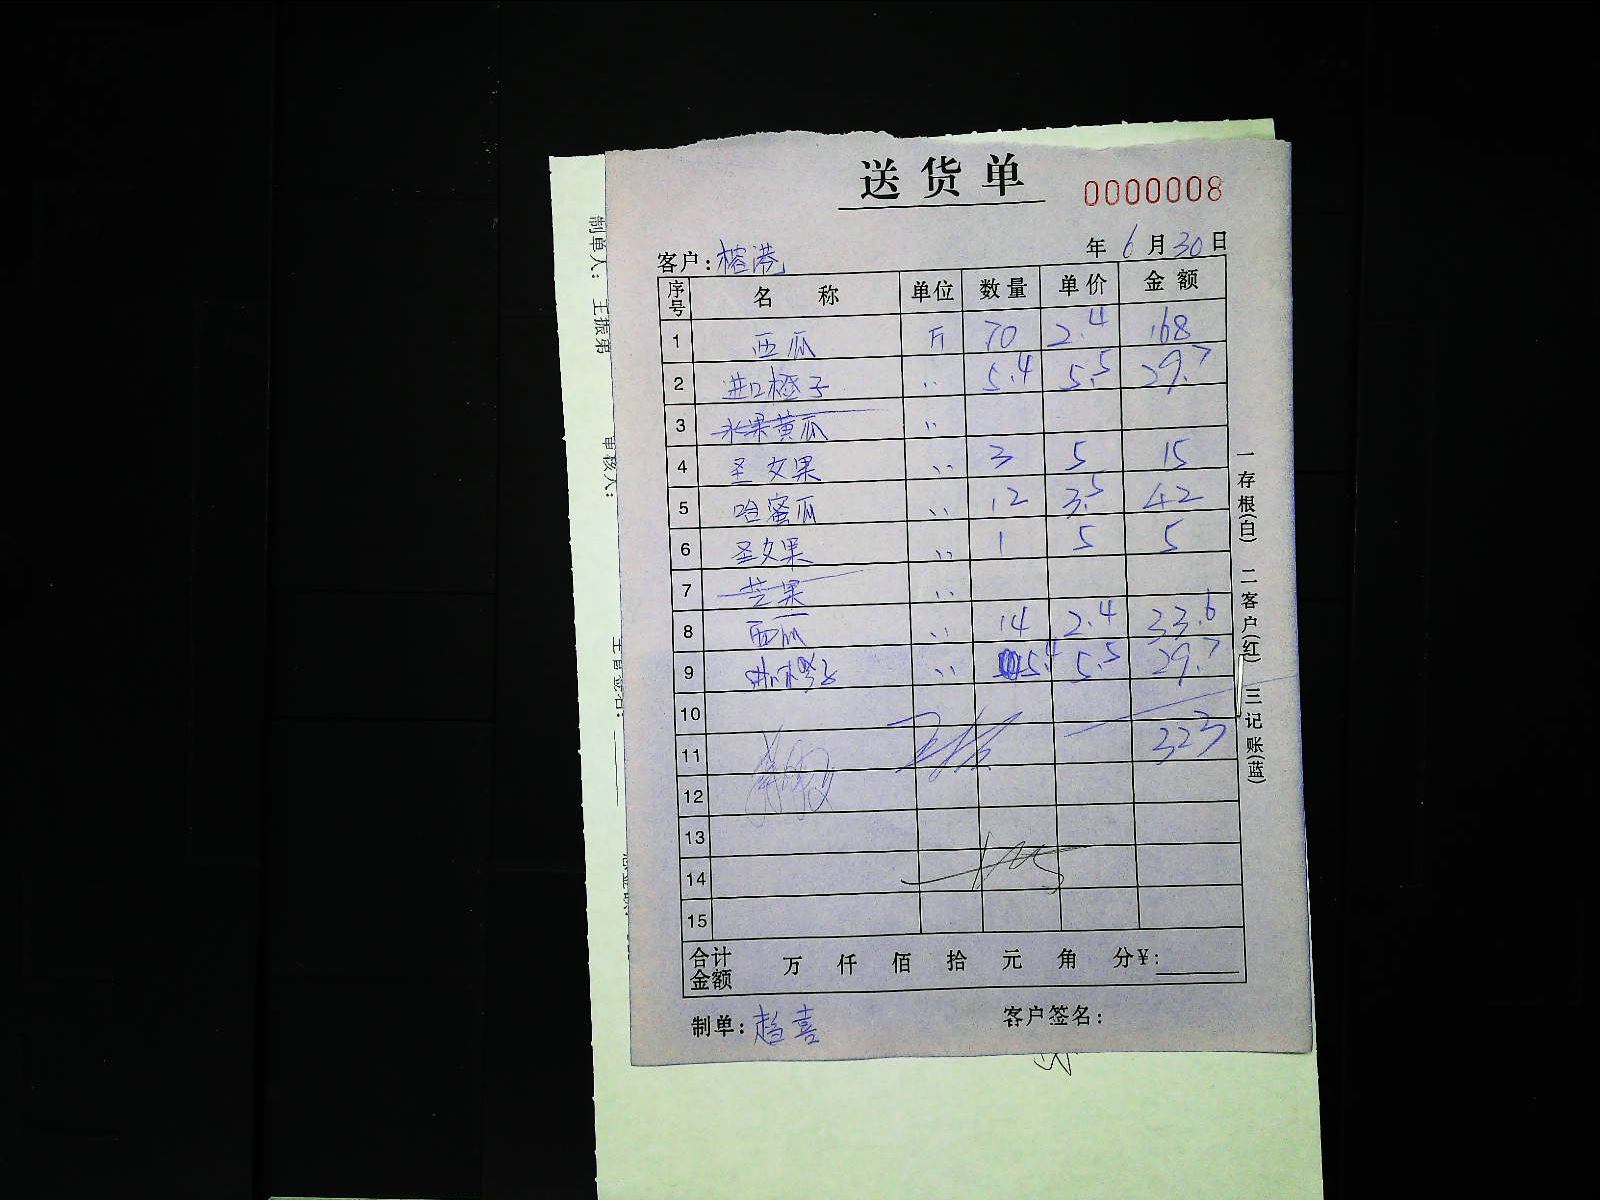 送货单
0000008
客户:榕港 年6月30日
序号 名称 单位 数量 单价 金额
1 西瓜 斤 70 2.4 168
2 进口橙子 〃 5.4 5.5 29.7
3 水果黄瓜 〃
4 圣女果 〃 3 5 15
5 哈蜜瓜 〃 12 3.5 42
6 圣女果 〃 1 5 5
7 芒果 〃
8 西瓜 〃 14 2.4 33.6
9 进口橙子 〃 5.4 5.5 29.7
10
11 323
12
13
14
15
合计金额 万 仟 佰 拾 元 角 分¥:
制单:赵喜 客户签名:
一存根(白) 二客户(红) 三记账(蓝)
制单人: 王振弟
审核人: